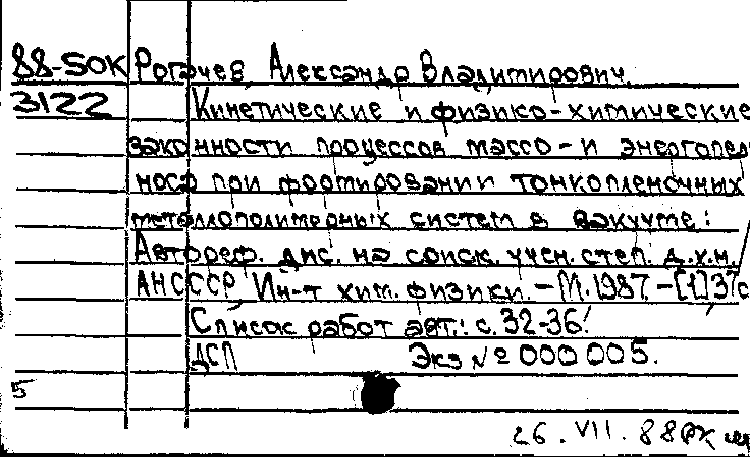 88-50К Рогачев Александр Владимирович.
3122 Кинетические и физико-химические
закономности процессов массо- и энергопел
носа при формировании тонкопленочных
металлополимерных систем в вакууме:
Автореф. дис. на соиск. учен. степ. д.х.н. /
АН СССР Ин-т хим. физики. - М. 1987. - [1] 37с
Список работ авт.: с. 32-36.
ДСП Экз № 000005.
5
26. VII. 88